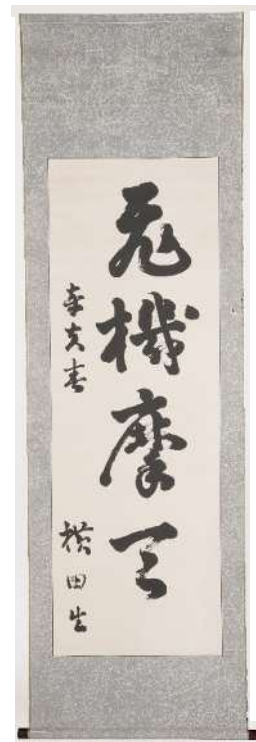 飛機摩天
辛亥春
横田生